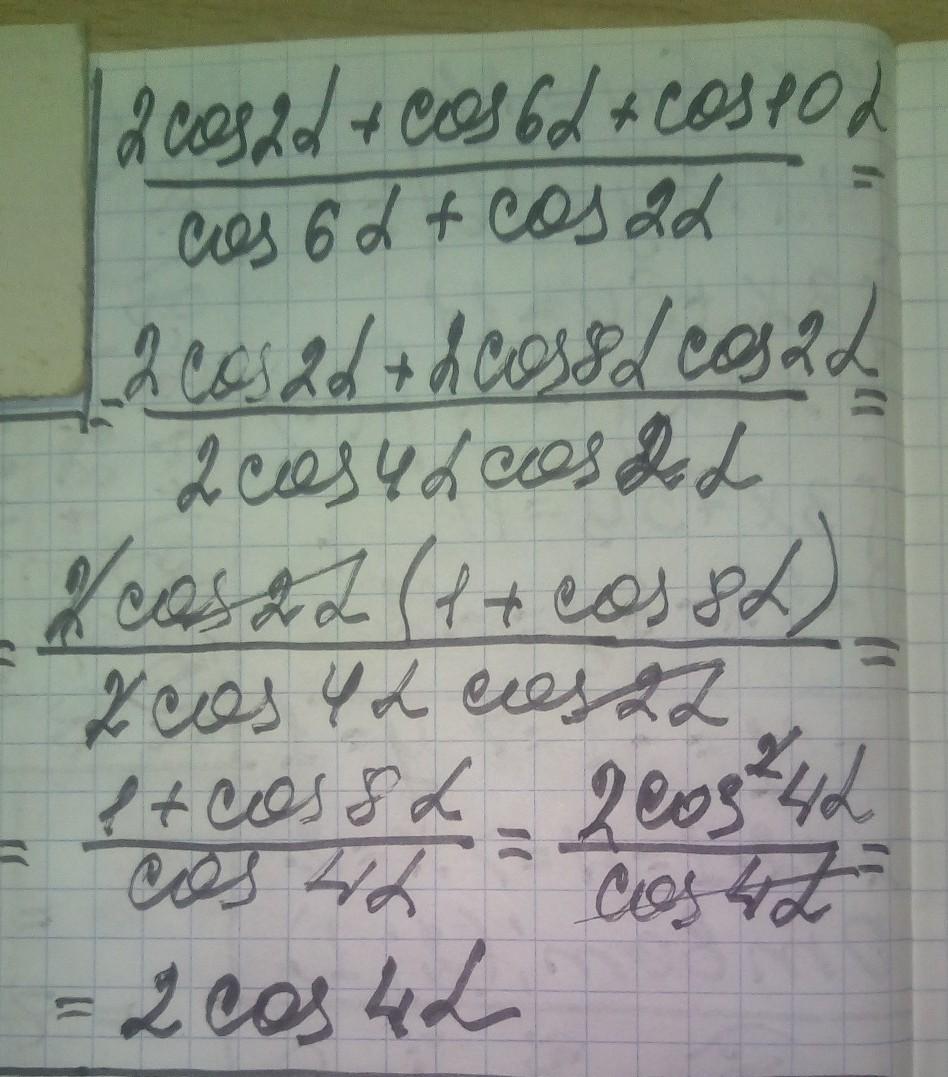 2cos2α + cos6α + cos10α
=
cos6α + cos2α
= 2cos2α + 2cos8α cos2α =
2cos4α cos2α
= 2cos2α (1 + cos8α) =
2cos4α cos2α
= 1 + cos8α = 2cos²4α =
cos4α cos4α
= 2cos4α